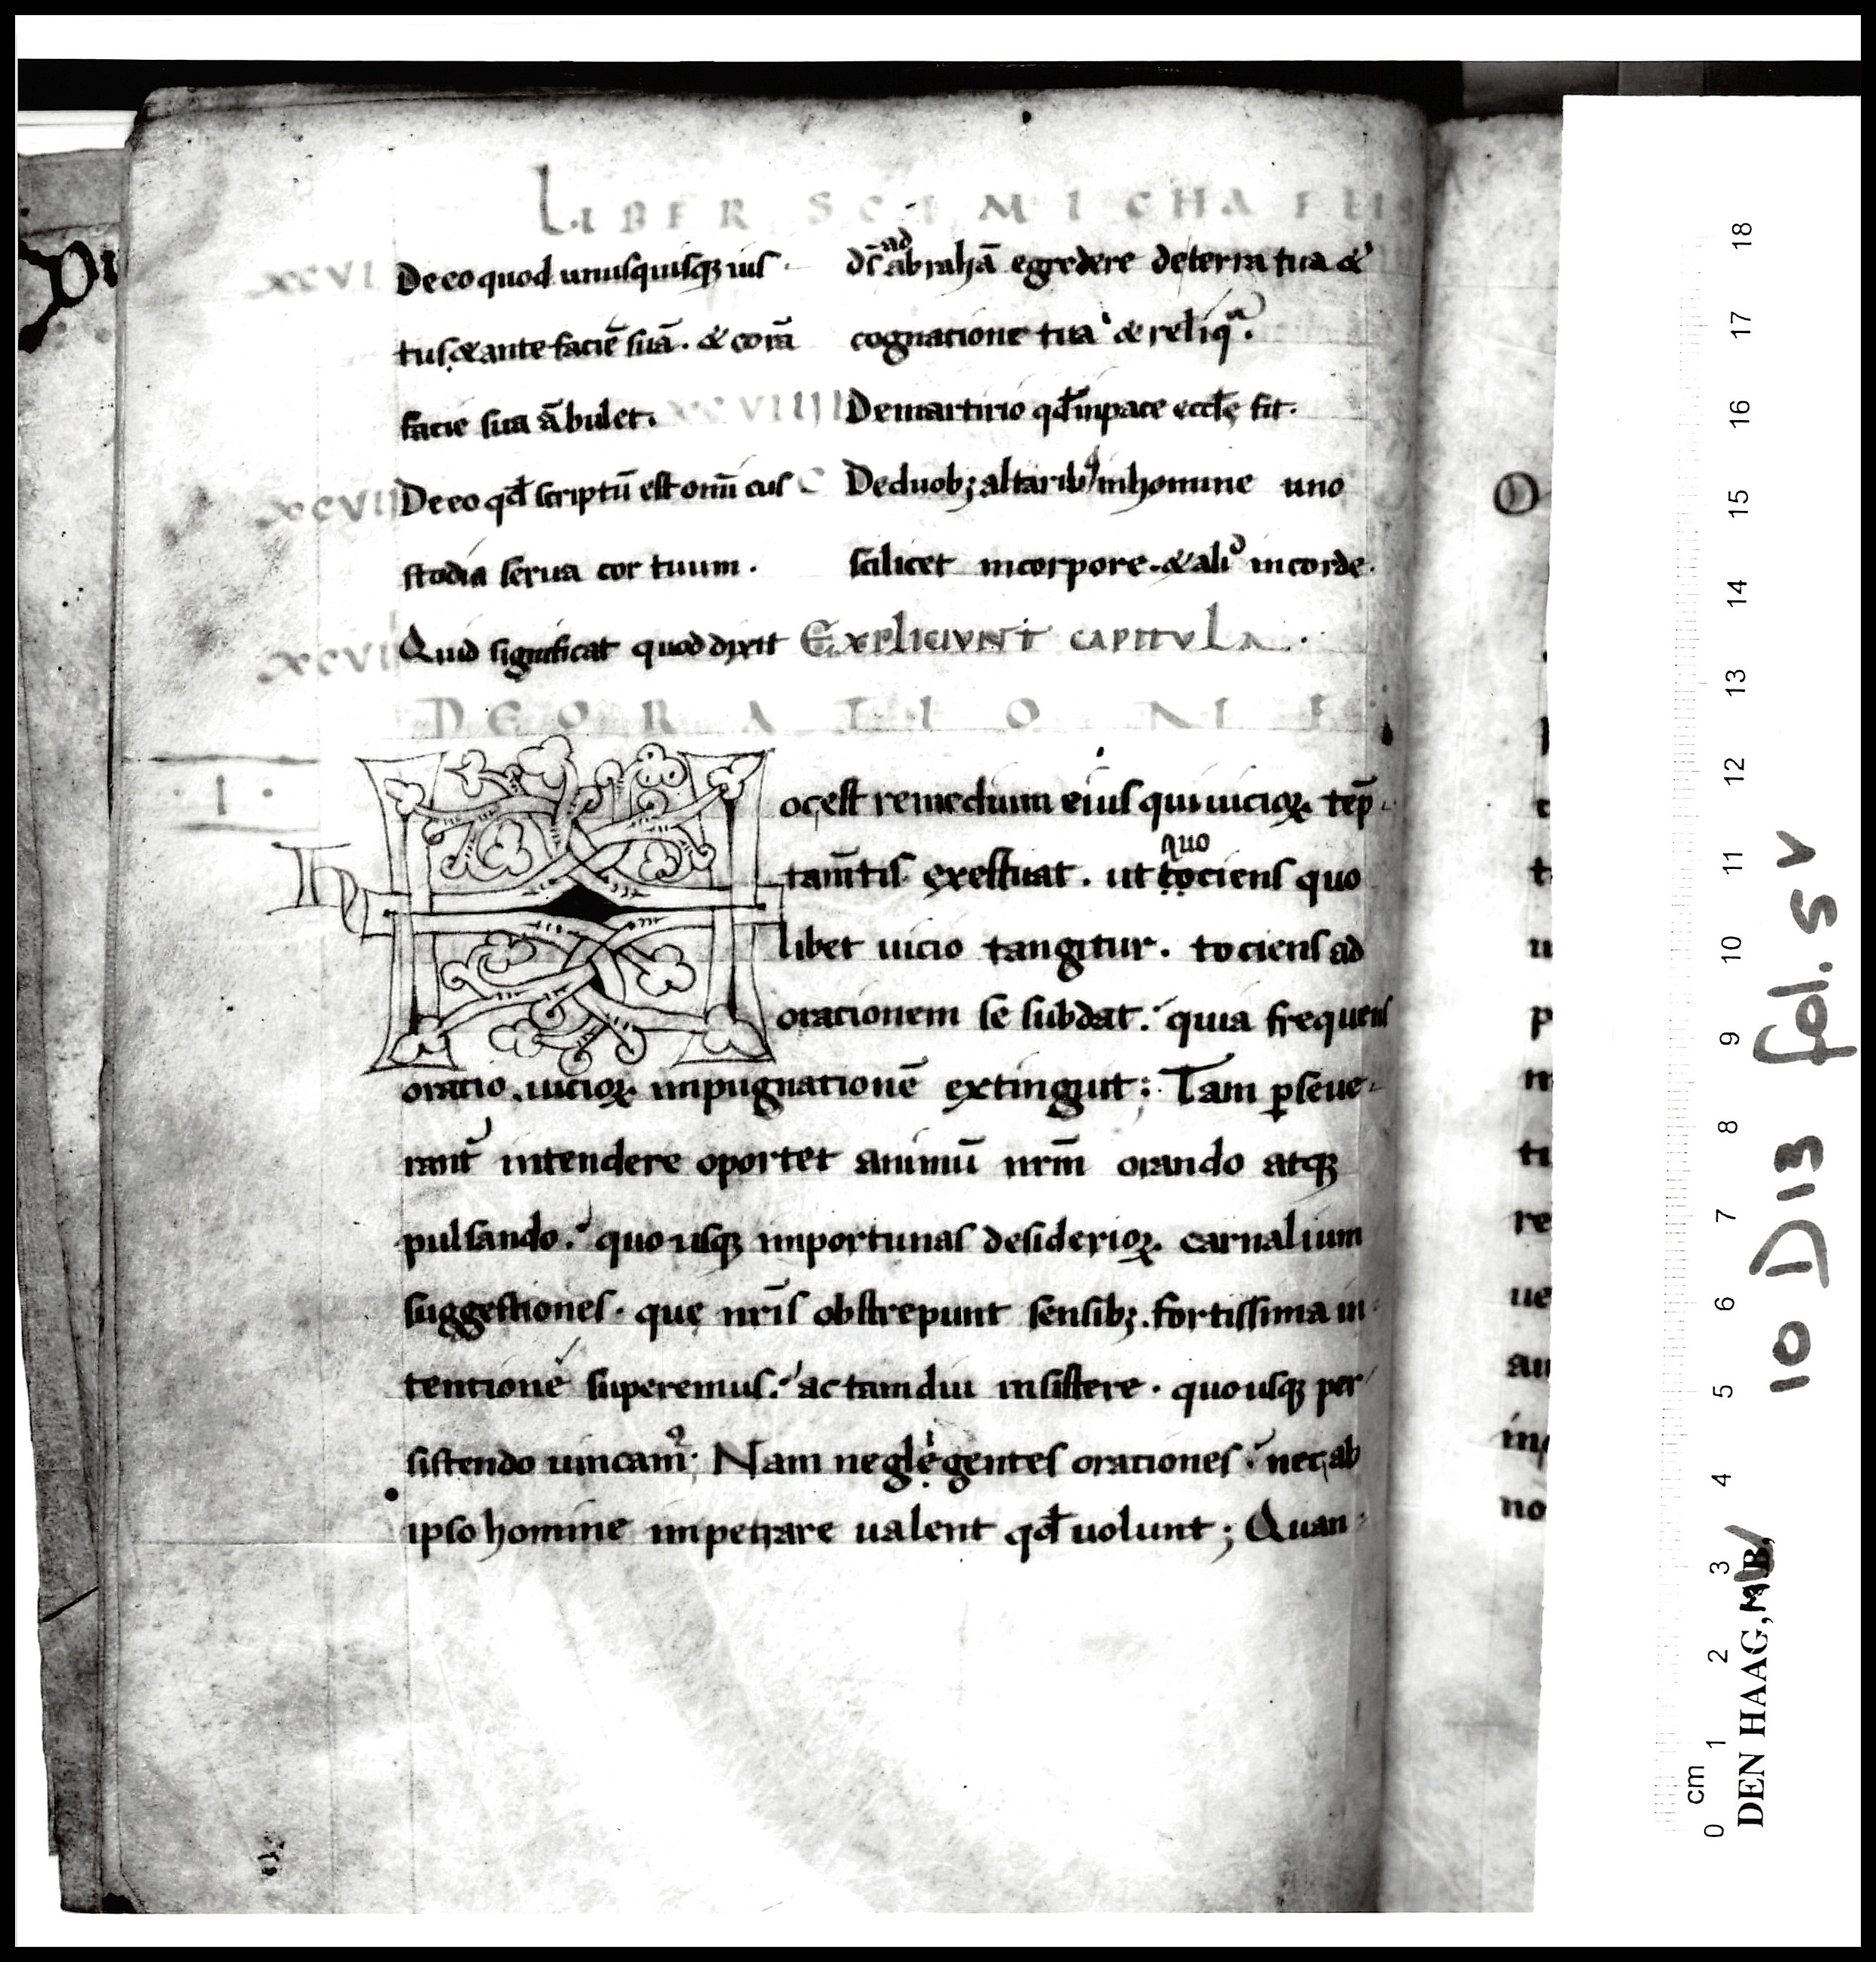 LIBER SCI MICHAELIS
XCVI De eo quod unusquisq; ius
tus & ante faciē suā. & corā
facie sua ābulet.
XCVII De eo qđ scriptū est omī cus
stodia serua cor tuum.
XCVIII Quid significat quod dixit
dn̄s ad abrahā egredere de terra tua &
cognatione tua & reliqa.
XCVIIII De martirio qđ in pace eccłę fit.
C De duob; altarib; in homine uno
scilicet in corpore. & alio in corde.
EXPLICIUNT CAPITULA.
DE ORATIONE
.I. H oc est remedium eius qui uicioꝝ tēp
tam̄tis exestuat. ut quo tociens quo
libet uicio tangitur. tociens ad
orationem se subdat. quia frequens
oratio uicioꝝ impugnationē extinguit; Tam ꝑseue
rant̄ intendere oportet animū nr̄m orando atq;
pulsando. quousq; importunas desiderioꝝ carnalium
suggestiones. quę nr̄is obstrepunt sensib;. fortissima in
tentione superemus. ac tamdiu insistere. quousq; per
sistendo uincamꝰ; Nam neglegentes orationes. nec ab
ipso homine impetrare ualent qđ uolunt; Quan
cm 0 1 2 3 4 5 6 7 8 9 10 11 12 13 14 15 16 17 18
DEN HAAG, MB, 10 D 13 fol. 5 v